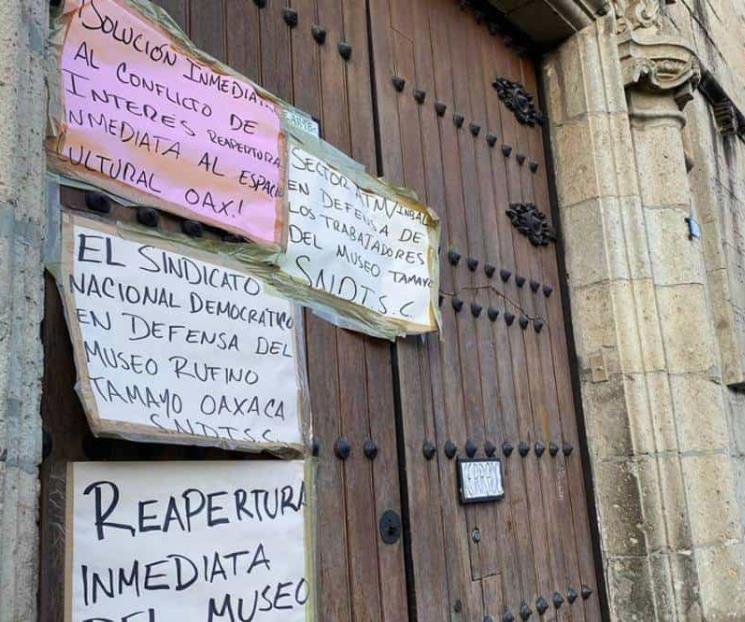 ¡SOLUCIÓN INMEDIATA
AL CONFLICTO DE
INTERÉS REAPERTURA
INMEDIATA AL ESPACIO
CULTURAL OAX!
SECTOR ATM/INBAL
EN DEFENSA DE
LOS TRABATADORES
DEL MUSEO TAMAYO
SNDTS.C
EL SINDICATO
NACIONAL DEMOCRATICO
EN DEFENSA DEL
MUSEO RUFINO
TAMAYO OAXACA
S.NDTS.C.
REAPERTURA
INMEDIATA
DEL MUSEO
CERRADO